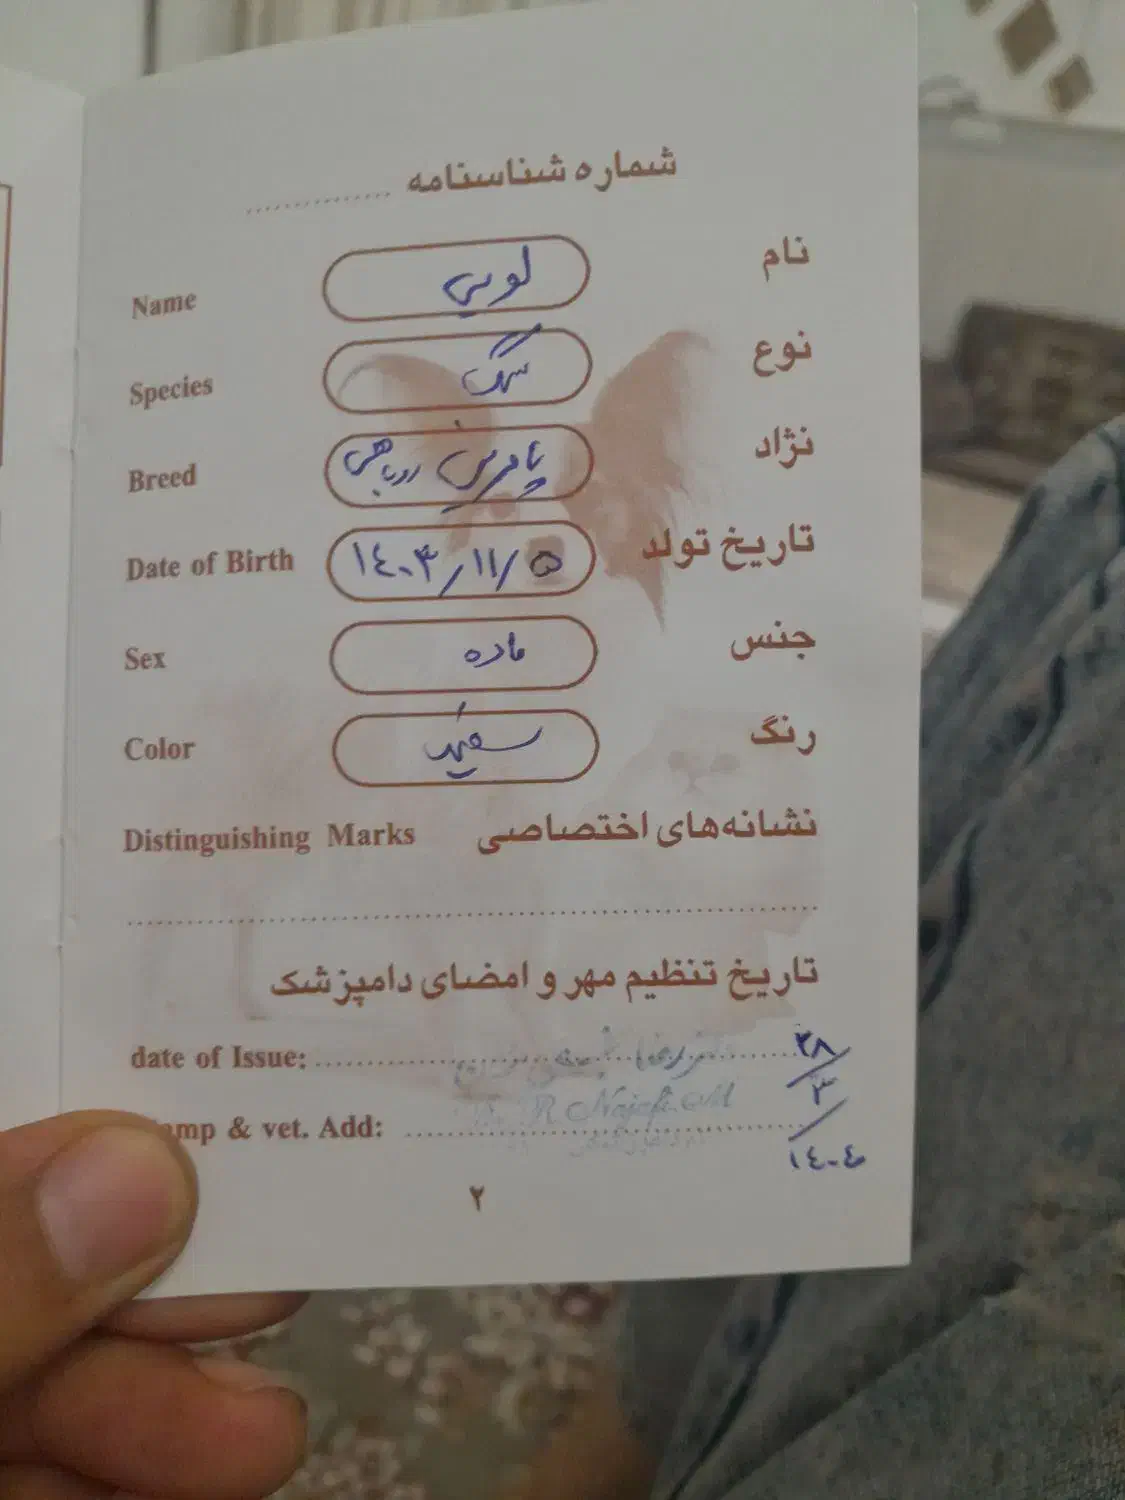 شماره شناسنامه ................
Name لوسی نام
Species سگ نوع
Breed پامرین روباهی نژاد
Date of Birth ۱٤۰۳/۱۱/۵ تاریخ تولد
Sex ماده جنس
Color سفید رنگ
Distinguishing Marks نشانه‌های اختصاصی
تاریخ تنظیم مهر و امضای دامپزشک
date of Issue: ۲۸/۳/۱٤۰٤
mp & vet. Add: R Najafi
۲